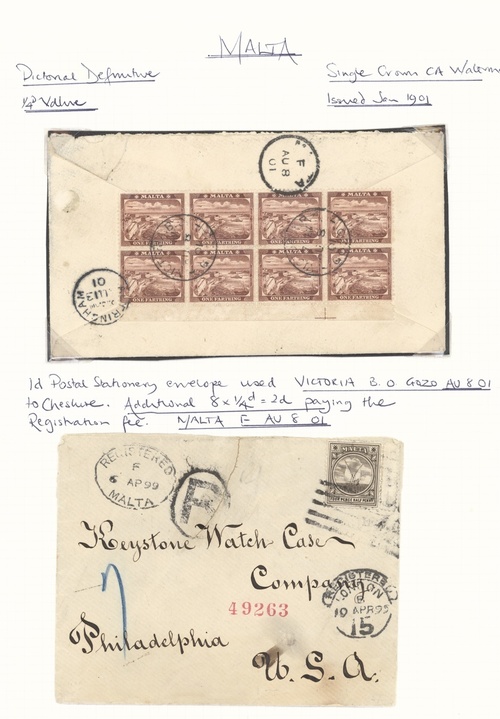 MALTA
Pictorial Definitive
Single Crown CA Waterm
¼d Value
Issued Jan 1901
F
AU 8
01
A
MALTA MALTA MALTA MALTA
ONE FARTHING ONE FARTHING ONE FARTHING ONE FARTHING
MALTA MALTA MALTA MALTA
ONE FARTHING ONE FARTHING ONE FARTHING ONE FARTHING
01
1d Postal Stationery envelope used VICTORIA B.O GOZO AU 8 01
to Cheshire. Additional 8 x ¼d = 2d paying the
Registration fee. MALTA F AU 8 01
REGISTERED
F
6 AP 99
MALTA
R
MALTA
Keystone Watch Case
Company
49263
REGISTERED
LONDON
10 APR 99
15
7
Philadelphia
U.S.A.